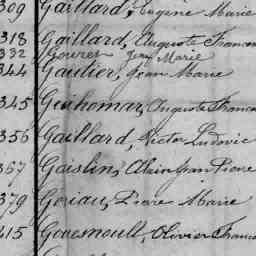 309 Gaillard, Eugène Marie
318 Gaillard, Auguste Francois
332 Goures Jean Marie
344 Gautier, Jean Marie
345 Guihomar, Auguste Francois
356 Gaillard, Victor Ludovic
367 Gaislin, Alain Jean Pierre
379 Goriau, Pierre Marie
415 Gouesmoult, Olivier Franco